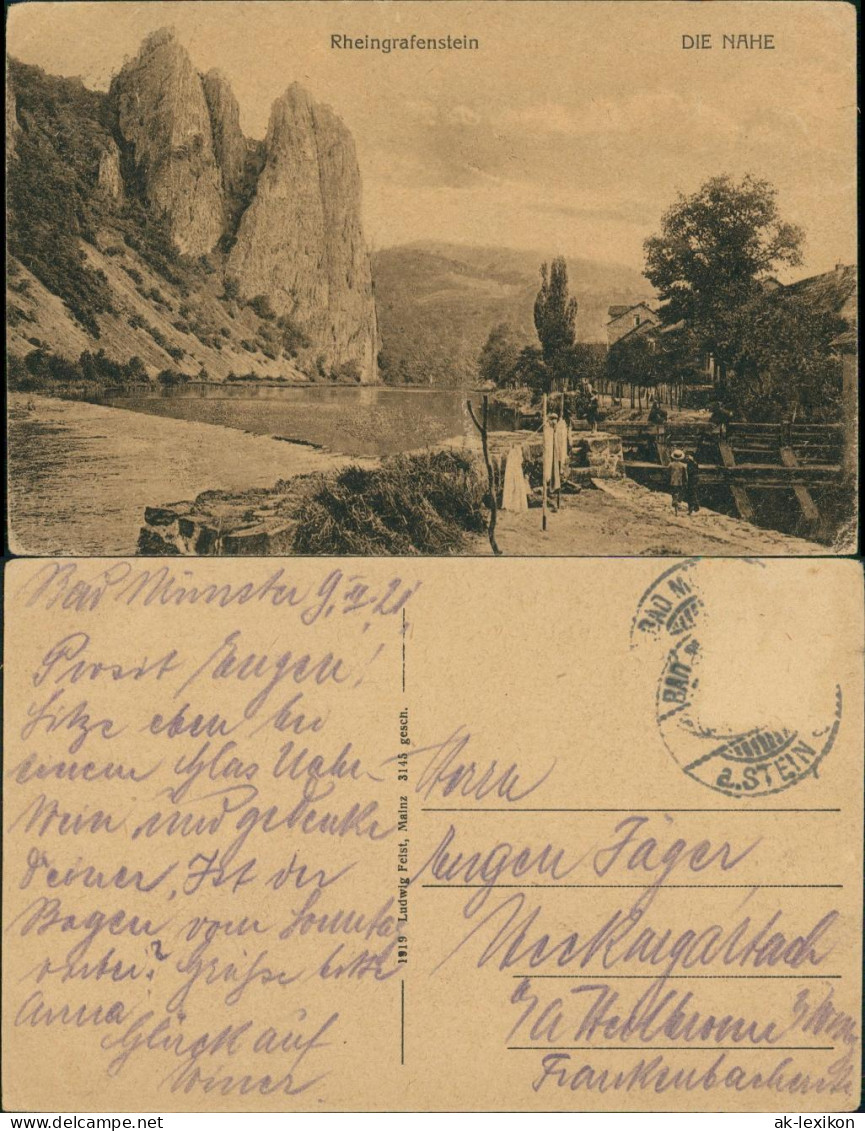 Rheingrafenstein
DIE NAHE
Bad Münster 9. 21
Prosit Eugen!
Sitze eben bei
einem Glas Nahe-
Wein und gedenke
Deiner. Ist der
Bogen vom
Grüße bitte
Anna
Glück auf
1919 Ludwig Feist, Mainz 3145 gesch.
BAD M
BAD
a.STEIN
Herrn
Eugen Jäger
Neckargartach
Heilbronn
ak-lexikon